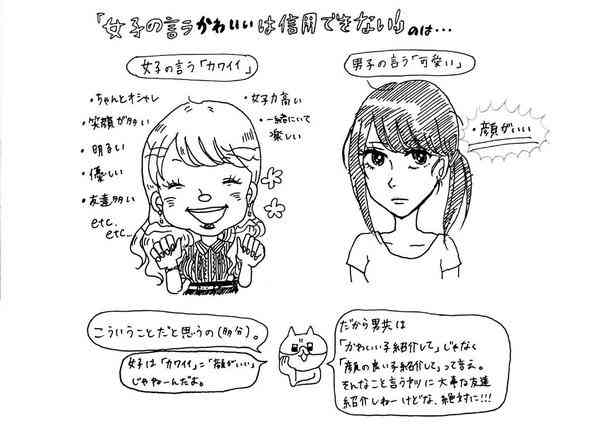 「女子の言うかわいいは信用できない」のは…
女子の言う「カワイイ」
・ちゃんとオシャレ
・笑顔が多い
・明るい
・優しい
・友達多い
etc.
etc…
・女子力高い
・一緒にいて
楽しい
男子の言う「可愛い」
・顔がいい
こういうことだと思うの(多分)。
女子は「カワイイ」=「顔がいい」
じゃねーんだよ。
だから男共は
「かわいい子紹介して」じゃなく
「顔の良い子紹介して」って言え。
そんなこと言うヤツに大事な友達
紹介しねーけどな、絶対に!!!